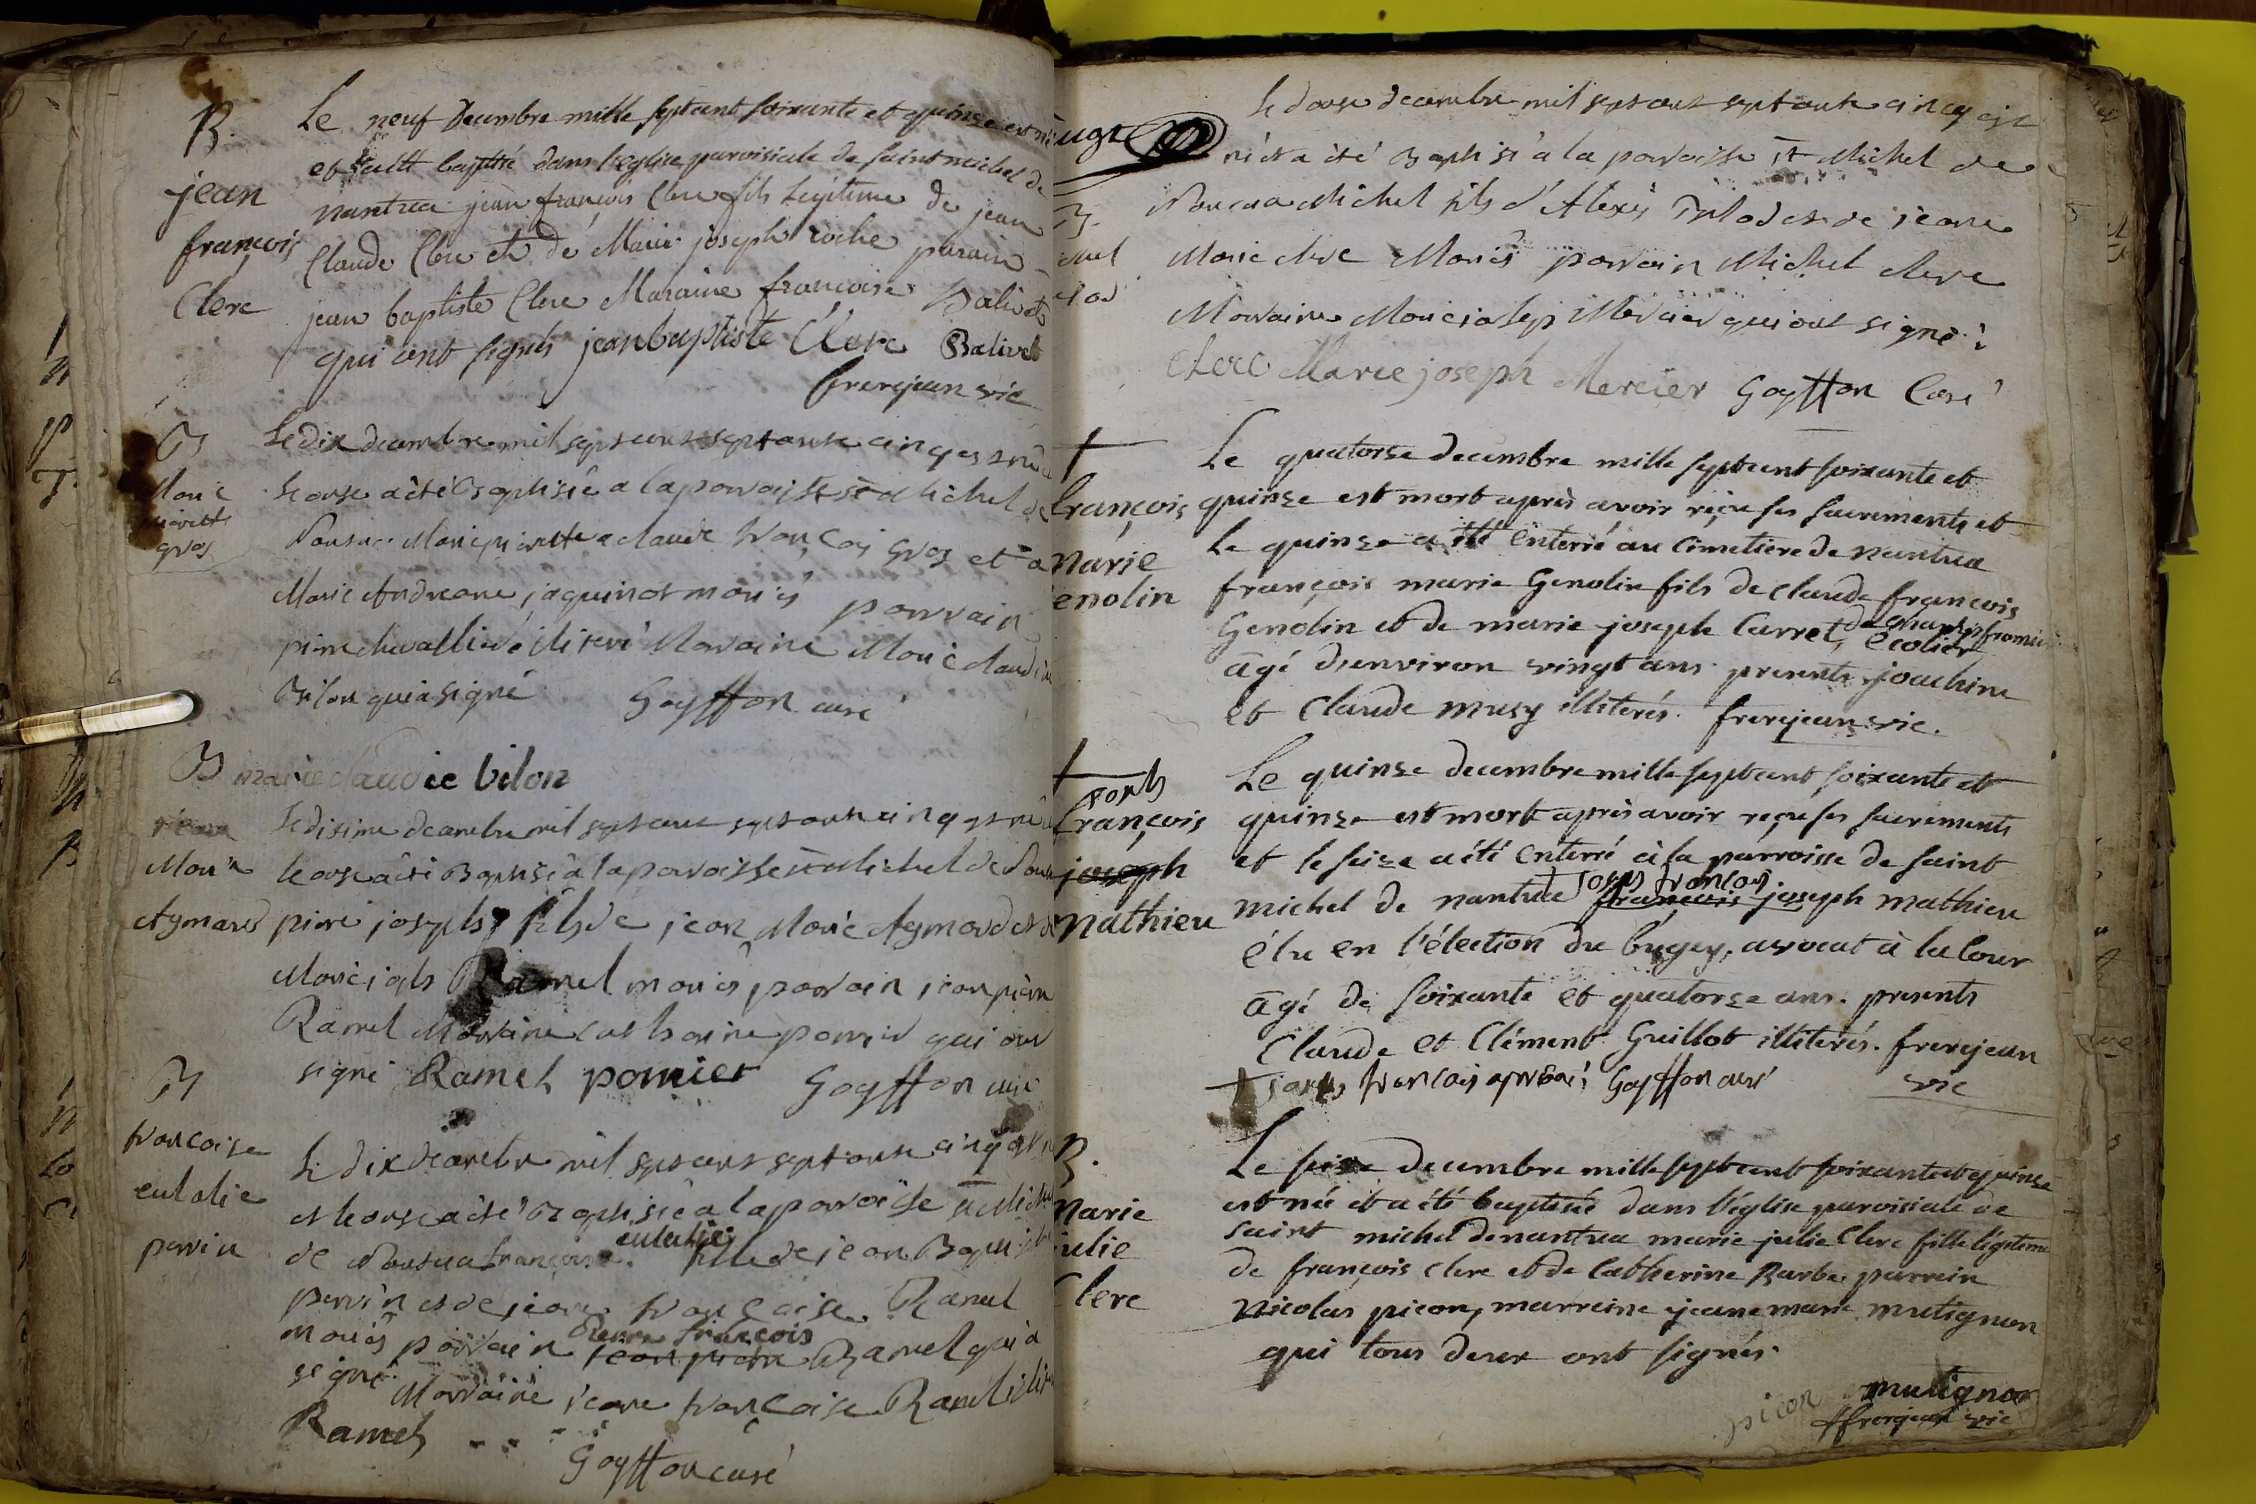 B.
jean
françois
Clerc
Le neuf decembre mille septcent soixante et quinse est né
et baptisé dans l'eglise paroisiale de saint michel de
nantua jean françois Clerc fils legitime de jean
Claude Clerc et de Marie joseph roche parain
jean baptiste Clerc Maraine françoise Balivet
qui ont signés jean baptiste Clerc Balivet
frerejean vic
B
Marie
pierrette
gros
Le dix decembre mil sept cent septante cinq est née
le onze a été Baptisée a la paroisse st Michel de
Nantua Marie pierrette a claude françois gros et a
Marie Andreane jaquinot mariés parrain
pierre chevallier illiteré Marraine Marie Claudine
Bilon qui a signé Goyffon curé
B marie claudie bilon
jean
Marie
Aymard
Le disieme decembre mil sept cent septante cinq est né
le onze a été Baptisé a la paroisse st Michel de Nantua
pierre joseph fils de jean Marie Aymard et de
Marie josph Ramel mariés parrain jean pierre
Ramel Marraine Catherine perrier qui ont
signé Ramel pernier Goyffon curé
B
francoise
eulalie
perrin
Le dix decembre mil sept cent septante cinq est née
et le onze a été Baptisée a la paroisse st Michel
de Nantua françoise eulalie fille de jean Baptiste
perrin et de jeane francoise Ramel
mariés parrain jean pierre pierre françois Ramel qui a
signé Marraine jeane francoise Ramel
Ramel
Goyffon curé
B.
Le douze decembre mil sept cent septante cinq est
né et a été Baptisé a la paroisse st Michel de
Nantua Michel fils d'Alexis et de jeane
Marie clerc Mariés parrain Michel clerc
Marraine Marie joseph Mercier qui ont signé
clerc Marie joseph Mercier Goyffon Curé
†
françois
marie
enolin
Le quatorse decembre mille septcent soixante et
quinse est mort après avoir reçu ses sacrements et
le quinse a été enterré au cimetiere de nantua
françois marie Genolin fils de claude françois
Genolin et de marie joseph Carret, de champfromier écolier
agé d'environ vingt ans presents joachim
et Claude musy illiterés. frerejean vic.
†
josph
françois
joseph
mathieu
Le quinse decembre mille septcent soixante et
quinse est mort après avoir reçu ses sacrements
et le seise a été enterré à la parroisse de saint
michel de nantua † josph francois françois joseph mathieu
élu en l'élection du bugey, avocat à la Cour
agé de soixante et quatorse ans. presents
Claude et Clément Guillot illiterés. frerejean
vic
† josph francois approuvé Goyffon curé
B.
marie
julie
Clerc
Le seise decembre mille septcent soixante et quinse
est née et a été baptisée dans l'église paroisiale de
saint michel de nantua marie julie Clerc fille légitime
de françois clerc et de Catherine Barbe parrein
Nicolas picon, marreine jeane marie mutignon
qui tous deux ont signés.
picon mutignon
frerejean vic